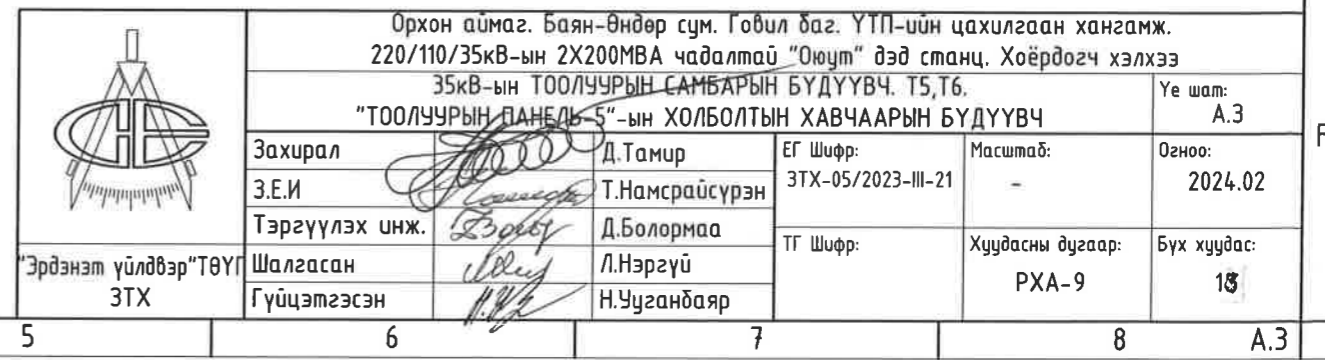 Орхон аймаг. Баян-Өндөр сум. Говил баг. ҮТП-ийн цахилгаан хангамж.
220/110/35кВ-ын 2Х200МВА чадалтай "Оюут" дэд станц. Хоёрдогч хэлхээ
35кВ-ын ТООЛУУРЫН САМБАРЫН БҮДҮҮВЧ. Т5,Т6.
"ТООЛУУРЫН ПАНЕЛЬ-5"-ын ХОЛБОЛТЫН ХАВЧААРЫН БҮДҮҮВЧ
Үе шат:
А.З
Захирал
Д.Тамир
З.Е.И
Т.Намсрайсүрэн
Тэргүүлэх инж.
Д.Болормаа
Шалгасан
Л.Нэргүй
Гүйцэтгэсэн
Н.Ууганбаяр
ЕГ Шифр:
ЗТХ-05/2023-III-21
Масштаб:
-
Огноо:
2024.02
ТГ Шифр:
Хуудасны дугаар:
РХА-9
Бүх хуудас:
"Эрдэнэт үйлдвэр"ТӨҮГ
ЗТХ
5 6 7 8 А.З
F